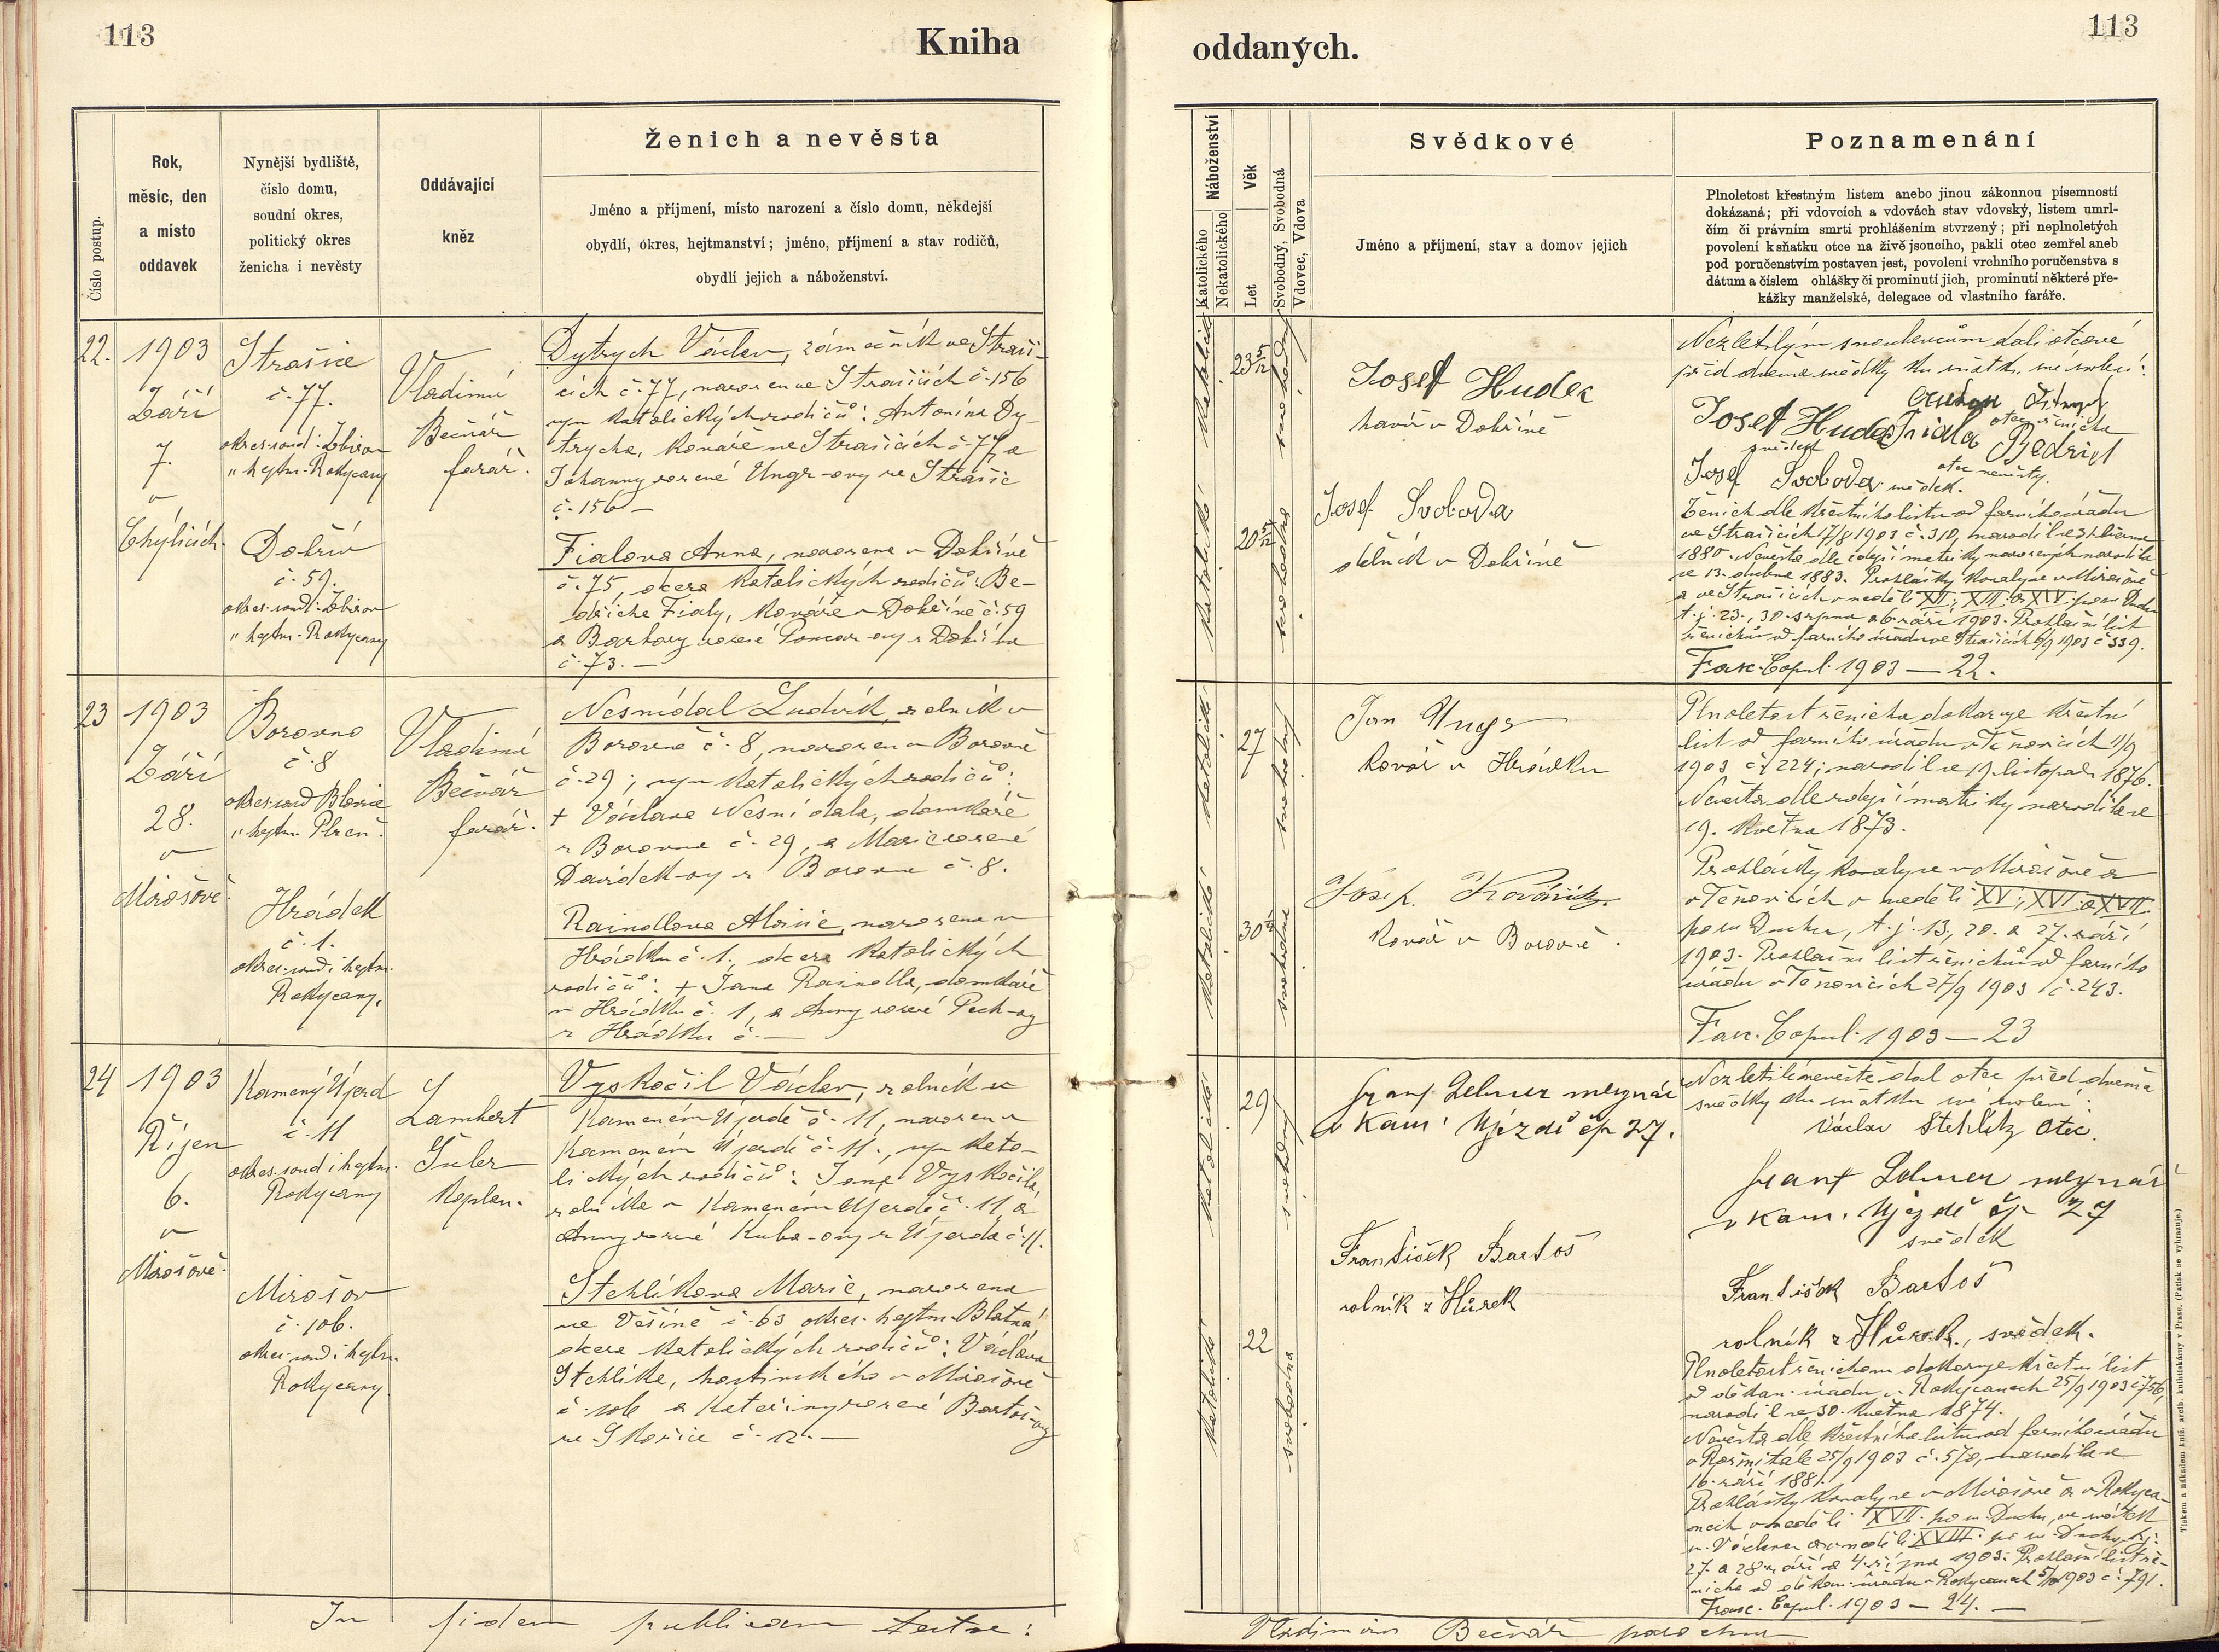 113
Kniha
Číslo postup.
Rok,
měsíc, den
a místo
oddavek
Nynější bydliště,
číslo domu,
soudní okres,
politický okres
ženicha i nevěsty
Oddávající
kněz
Ženich a nevěsta
Jméno a příjmení, místo narození a číslo domu, někdejší
obydlí, okres, hejtmanství; jméno, příjmení a stav rodičů,
obydlí jejich a náboženství.
22.
1903
Září
7.
v
Strašice
č. 77.
okres. soud: Zbirov
" hejtm. Rokycany
Dobřív
č. 59.
okres. soud: Zbirov
" hejtm. Rokycany
Vladimír
Bečvář
farář.
Dytrych Václav, zámečník ve Straši-
cích č. 77, narozen ve Strašicích č. 156
syn katolických rodičů: Antonína Dy-
trycha, kováře ve Strašicích č. 77, a
Johanny rozené Ungr-ovy ze Strašic
č. 156 —
Fialova Anna, narozena v Dobřívě
č. 75, dcera katolických rodičů: Be-
dřicha Fialy, kováře v Dobřívě č. 59
a Barbory rozené
č. 73. —
23
1903
Září
28.
v
Mirošově.
Borovno
č. 8
okres. soud Blovice
" hejtm. Plzeň.
Hrádek
č. 1.
okres. soud i hejtm.
Rokycany.
Vladimír
Bečvář
farář.
Nesnídal Ludvík, rolník v
Borovně č. 8, narozen v Borovně
č. 29; syn katolických rodičů:
+ Václava Nesnídala, domkáře
z Borovna č. 29, a Marie rozené
Davídek-ovy z Borovna č. 8.
Raindlova Aloisie, narozena v
Hrádku č. 1., dcera katolických
rodičů: + Jana Raindla, domkáře
v Hrádku č. 1, a Anny rozené Pech-ovy
z Hrádku č. —
24
1903
Říjen
6.
v
Mirošově.
Kamený Újezd
č. 11
okres. soud i hejtm.
Rokycany
Mirošov
č. 106.
okres. soud i hejtm.
Rokycany.
Lambert
kaplan.
Vyskočil Václav, rolník v
Kameném Újezdě č. 11, narozen v
Kameném Újezdě č. 11., syn kato-
lických rodičů: Jana Vyskočila,
rolníka v Kameném Újezdě č. 11, a
Anny rozené Kuba-ovy z Újezda č. 11.
Stehlíkova Marie, narozena
ve Věšíně č. 63 okres. hejtm. Blatná,
dcera katolických rodičů: Václava
Stehlíka, hostinského v Mirošově
č. 106 a Kateřiny rozené Bartoš-ovy
ze Skořice č. 12. —
In fidem publicam testor:
113
oddaných.
Náboženství
Katolického
Nekatolického
Věk
Let
Svobodný, Svobodná
Vdovec, Vdova
Svědkové
Jméno a příjmení, stav a domov jejich
Poznamenání
Plnoletost křestným listem anebo jinou zákonnou písemností
dokázaná; při vdovcích a vdovách stav vdovský, listem umrl-
čím či právním smrti prohlášením stvrzený; při neplnoletých
povolení k sňatku otce na živě jsoucího, pakli otec zemřel aneb
pod poručenstvím postaven jest, povolení vrchního poručenstva s
dátum a číslem ohlášky či prominutí jich, prominutí některé pře-
kážky manželské, delegace od vlastního faráře.
katolické
23 5/12
svobodný
Josef Hudec
havíř v Dobřívě
katolické
20 5/12
svobodná
Josef Svoboda
dělník v Dobřívě
Nezletilým snoubencům dali otcové
před dvěma svědky ku sňatku své svolení:
otec ženicha
Josef Hudec Fiala Bedřich
svědek
otec nevěsty.
Josef Svoboda svědek.
Ženich dle křestního listu od farního úřadu
ve Strašicích 17/8 1903 č. 310, narodil se
1880. Nevěsta dle zdejší matriky narozených narodila
se 13. dubna 1883. Prohlášky konaly se v Mirošově
a ve Strašicích v neděli XII., XIII. a XIV. po sv. Duchu
t. j. 23., 30. srpna a 6. září 1903. Prohlašní list
ženichův od farního úřadu ve Strašicích 6/9 1903 č. 339.
Fasc. Copul. 1903 — 22.
katolické
27
svobodný
Jan Ungr
kovář v Hrádku
katolické
30
svobodná
Josef
kovář v Borovně.
Plnoletost ženicha dokazuje křestní
list od farního úřadu v Těnovicích 11/9
1903 č. 224; narodil se 19. listopadu 1876.
Nevěsta dle zdejší matriky narodila se
19. května 1873.
Prohlášky konaly se v Mirošově a
v Těnovicích v neděli XV., XVI. a XVII.
po sv. Duchu, t. j. 13., 20. a 27. září
1903. Prohlašní list ženichův od farního
úřadu v Těnovicích 27/9 1903 č. 243.
Fasc. Copul. 1903 — 23
katolické
29
svobodný
Frant. Lehner mlynář
v Kam. Újezdě čp 27.
katolické
22
svobodná
František Bartoš
rolník z Hůrek
Nezletilé nevěstě dal otec před dvěma
svědky ku sňatku své svolení:
Václav Stehlík Otec.
Frant Lehner mlynář
v Kam. Újezdě čp 27
svědek
František Bartoš
rolník z Hůrek, svědek.
Plnoletost ženichovu dokazuje křestní list
od děkan. úřadu v Rokycanech 25/9 1903 č. 756,
narodil se 30. května 1874.
Nevěsta dle křestního listu od farního úřadu
v Rožmitále 25/9 1903 č. 570, narodila se
16. září 1881.
Prohlášky konaly se v Mirošově a v Rokyca-
nech v neděli XVII. po sv. Duchu, ve svátek
sv. Václava a v neděli XVIII. po sv. Duchu, t. j.
27. a 28. září a 4. října 1903. Prohlašní list že-
nicha od děkan. úřadu v Rokycanech 5/10 1903 č. 791.
Fasc. Copul. 1903 — 24. —
Vladimirus Bečvář parochus
Tiskem a nákladem kníž. arcib. knihtiskárny v Praze. (Patisk se vyhrazuje.)